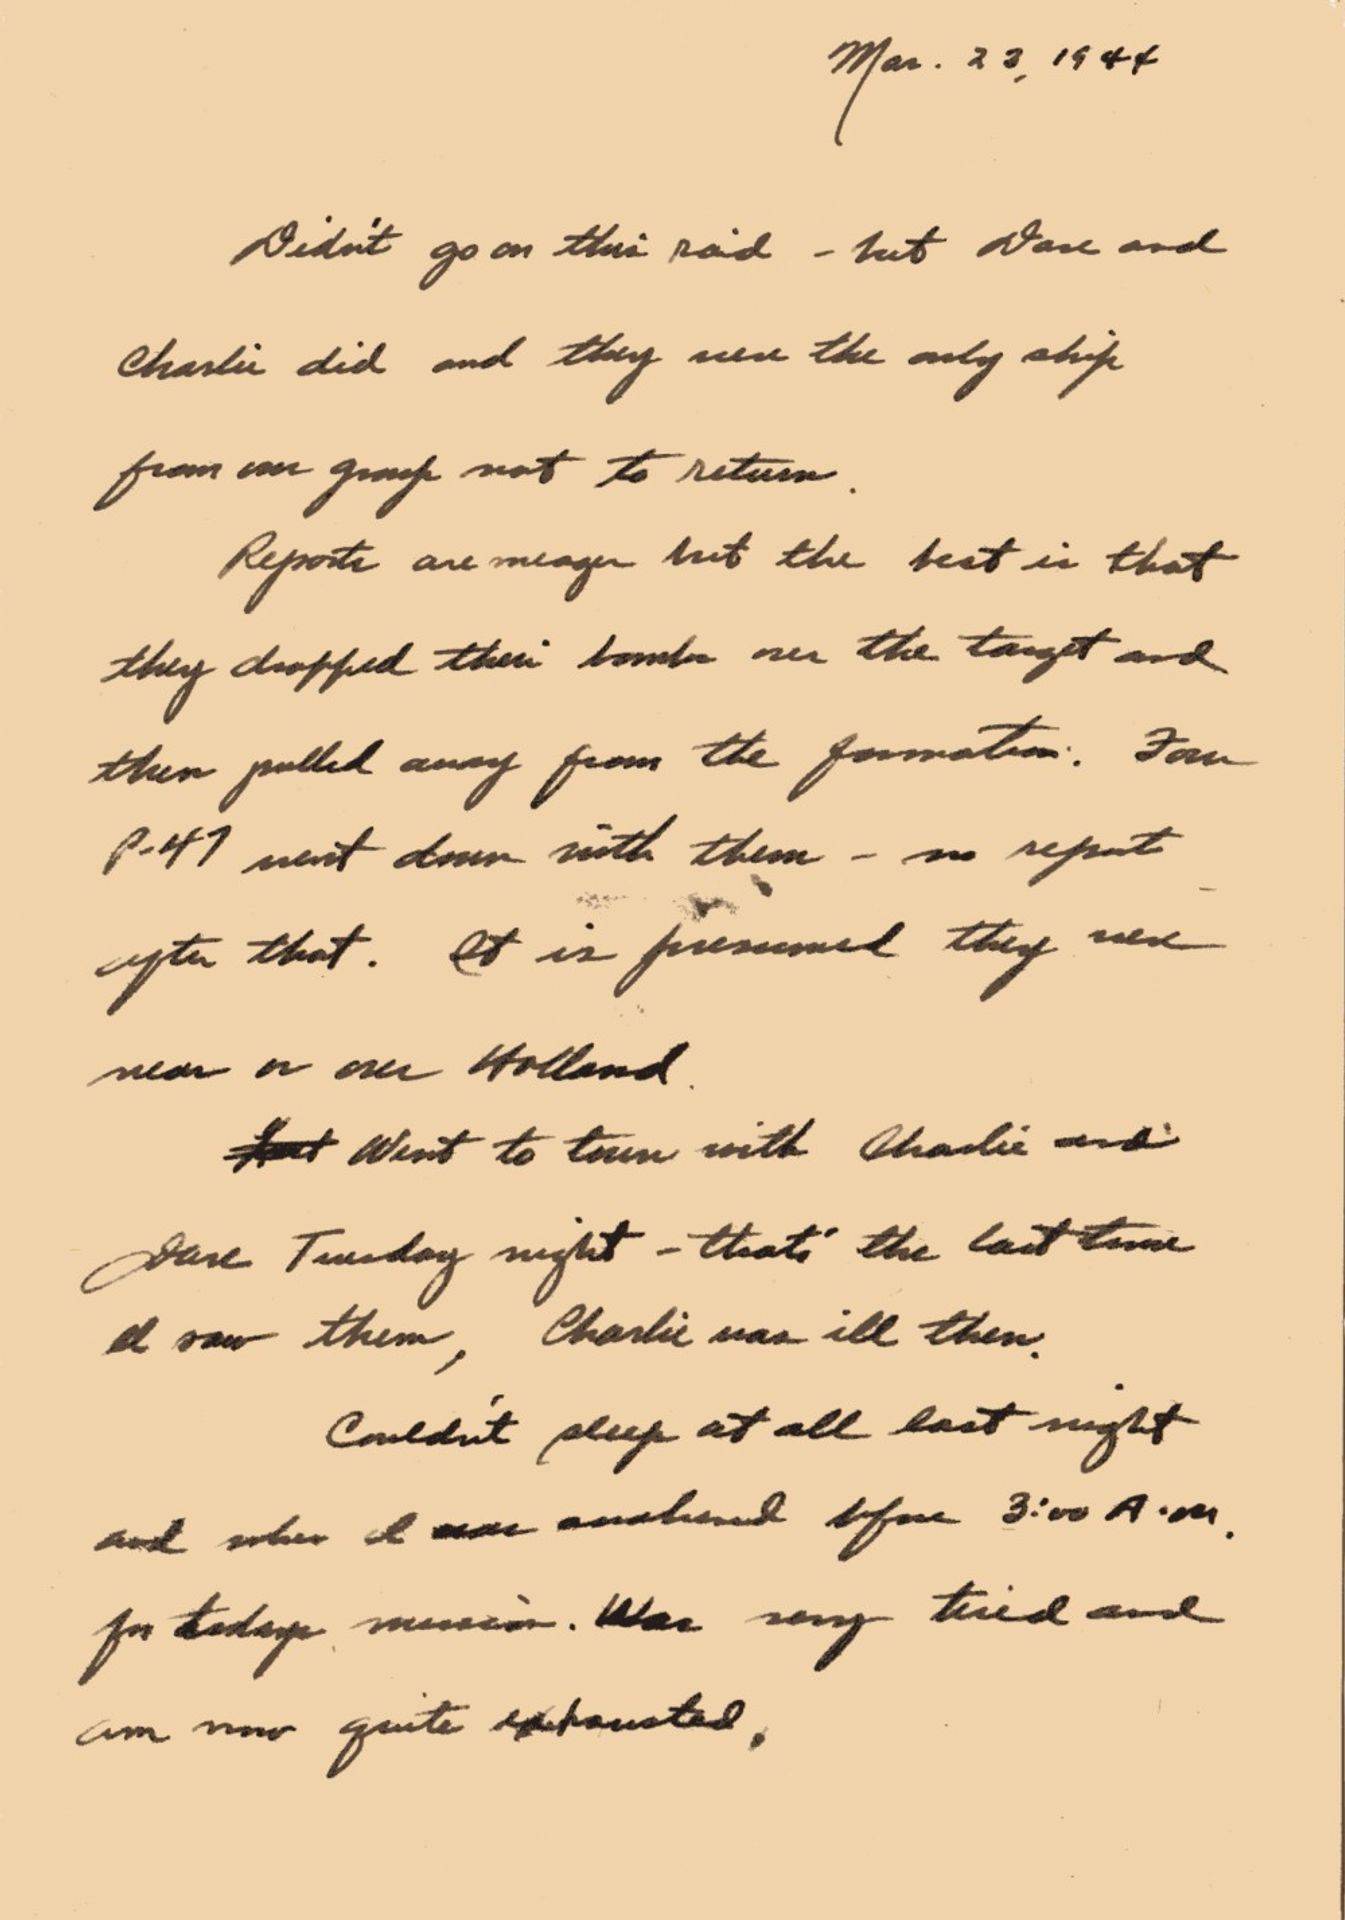 Mar. 23, 1944
Didn't go on this raid - but Dave and
Charlie did and they were the only ship
from our group not to return.
Reports are meager but the best is that
they dropped their bombs over the target and
then pulled away from the formation. Four
P-47 went down with them - no reports
after that. It is presumed they were
near or over Holland.
Went to town with Charlie and
Dave Tuesday night - that's the last time
I saw them, Charlie was ill then.
Couldn't sleep at all last night
and when I was awakened before 3:00 A.M.
for todays mission. Was very tired and
am now quite exhausted.